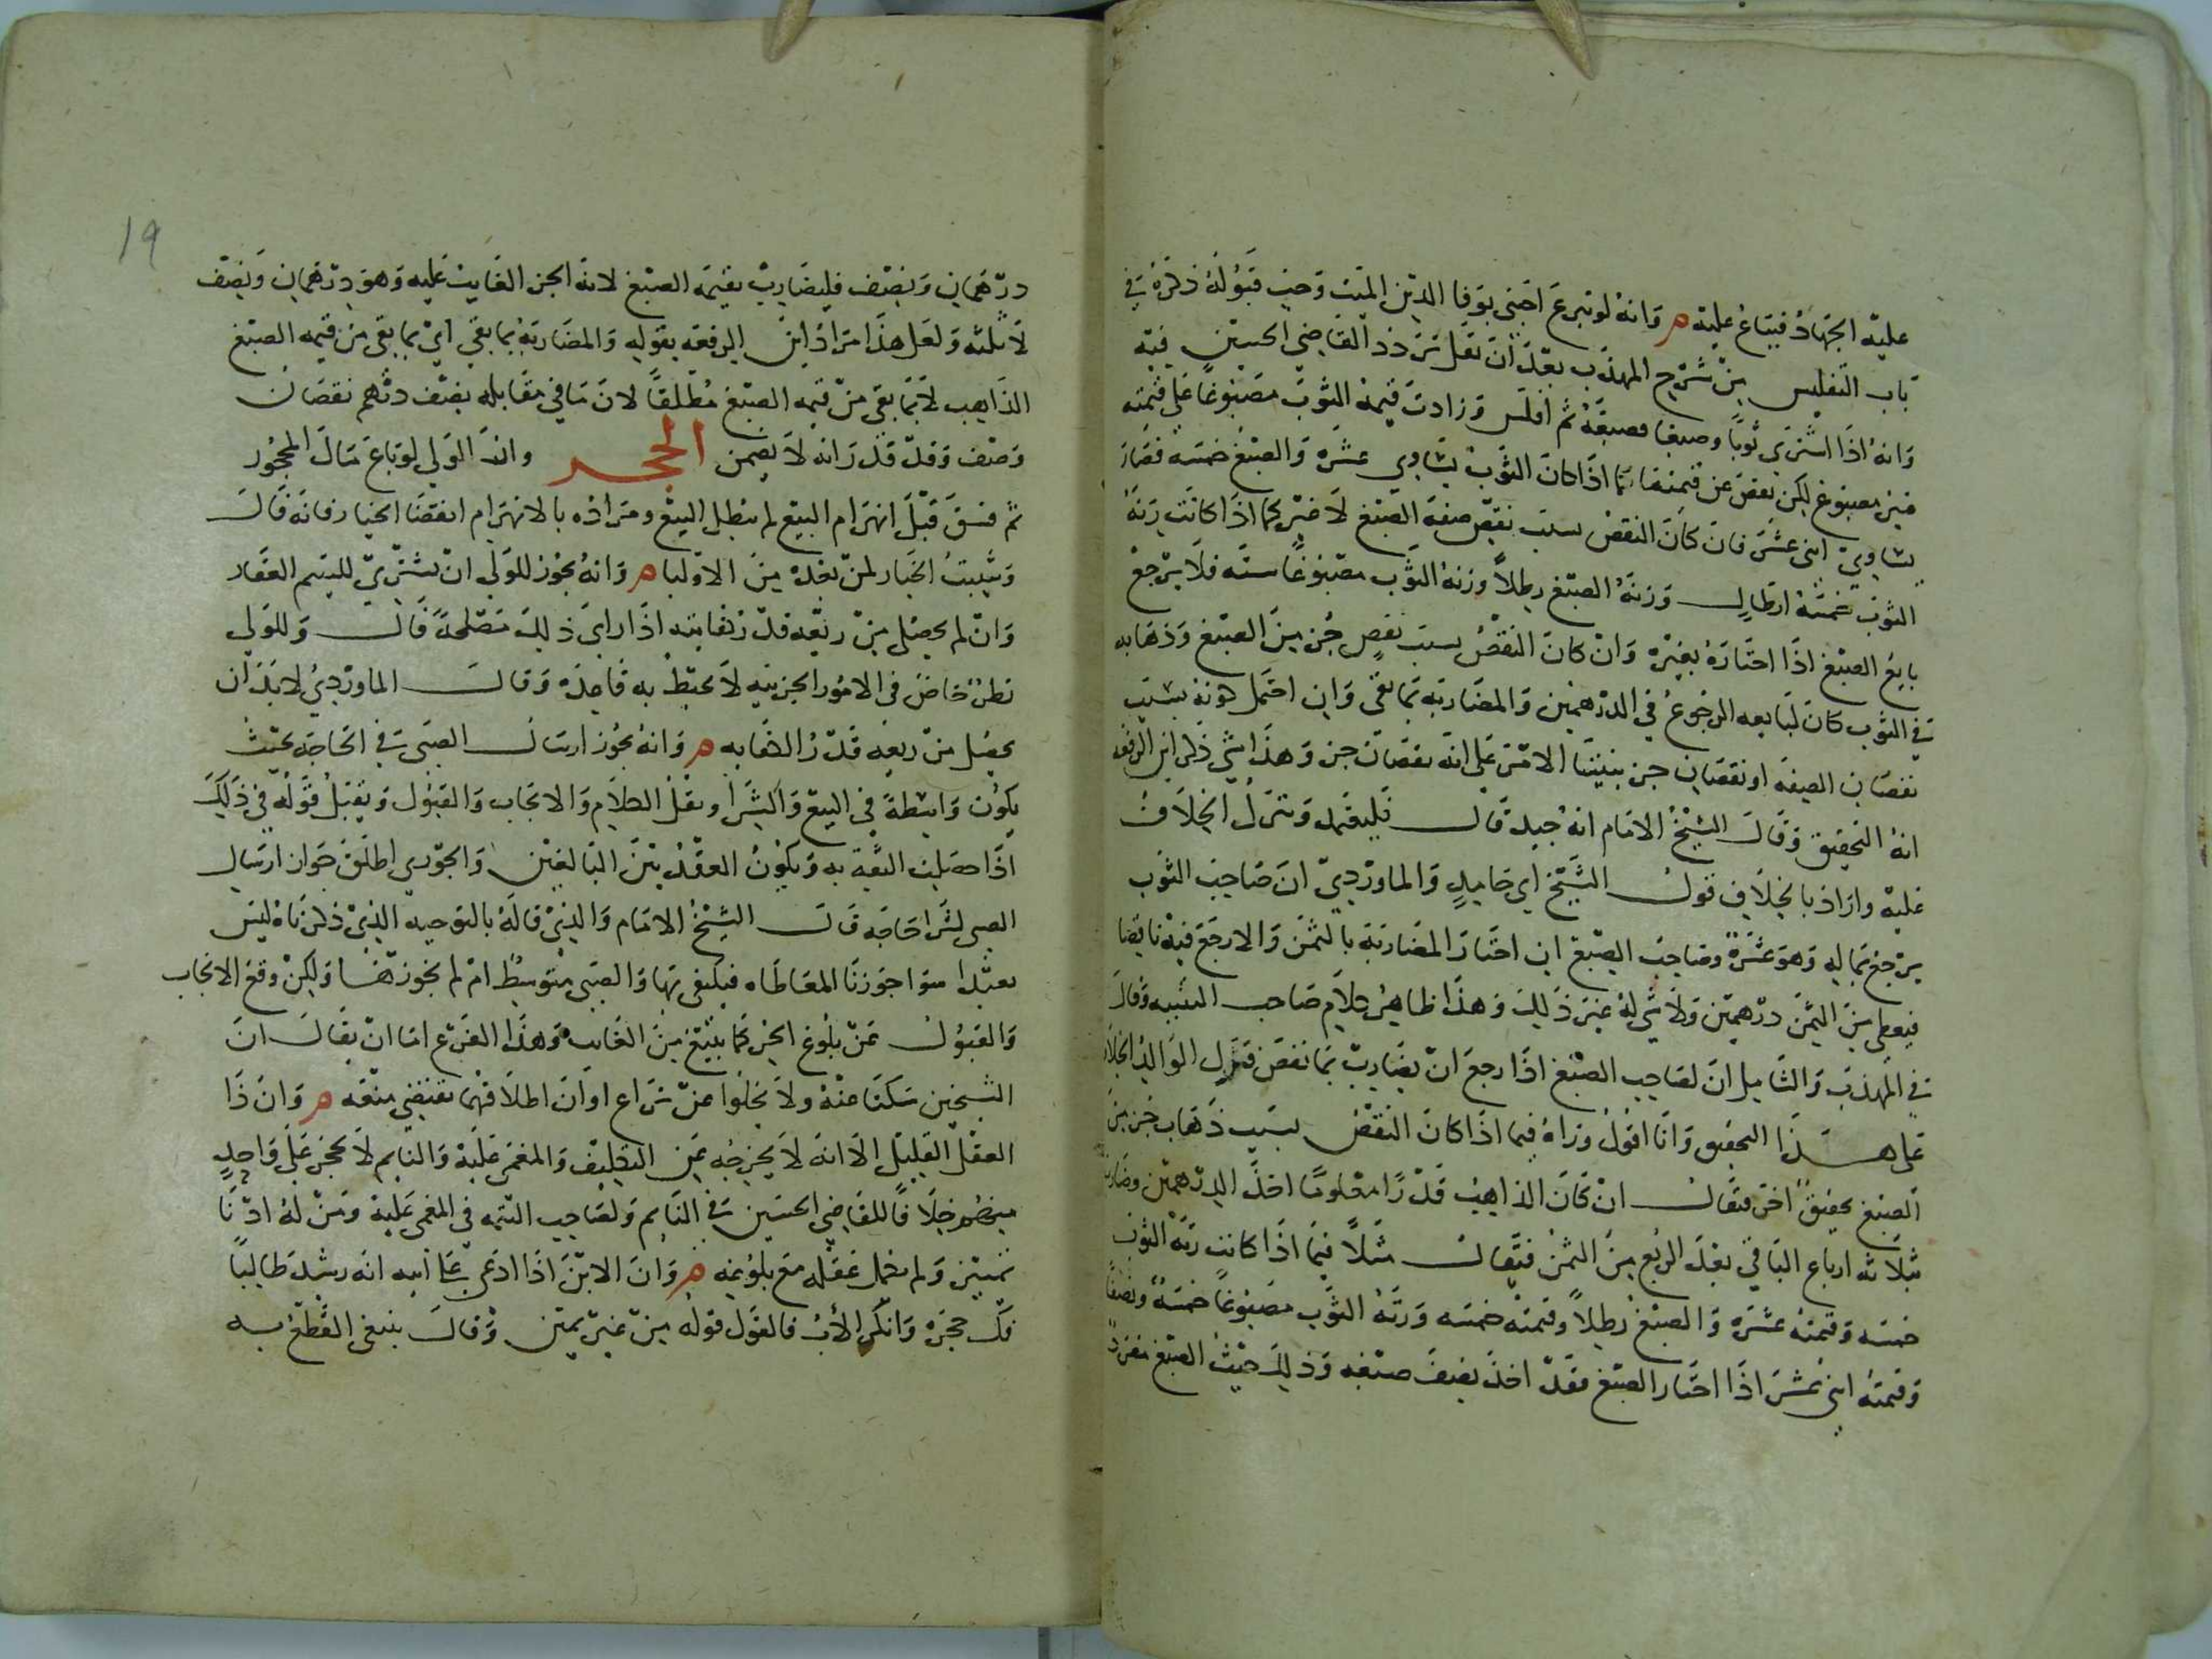 عليه الجهاد فيباع عليه ه وانه لو تبرع اجنبي بوفا الدين الميت وجب قبوله ذكره في
باب التفليس من شرح المهذب بعد ان نقل تردد القاضي الحسين فيه
وانه اذا اشترى ثوبا وصبغا فصبغه ثم افلس وزادت قيمة الثوب مصبوغا على قيمته
غير مصبوغ لكن نقص عن قيمتهما كما اذا كان الثوب يساوي عشرة والصبغ خمسه فصار
يساوي اثنى عشر فان كان النقص بسبب نقص صفة الصبغ لا غير كما اذا كانت زنة
الثوب خمسة ارطال وزنة الصبغ رطلا وزنة الثوب مصبوغا سته فلا يرجع
بايع الصبغ اذا اختاره بغيره وان كان النقص بسبب نقص جزء من الصبغ وذهابه
في الثوب كان لبايعه الرجوع في الدرهمين والمضاربه بما بقى وان احتمل كونه بسبب
نقصان الصفه او نقصان جز بنينا الامر على انه نقصان جز وهذا شي ذكر ابن الرفعه
انه التحقيق وقال الشيخ الامام انه جيد قال فليعتمد وتنزل الخلاف
عليه واراد بالخلاف قول الشيخ ابي حامد والماوردي ان صاحب الثوب
يرجع بماله وهو عشرة وصاحب الصبغ ان اختار المضاربة بالثمن والا رجع فيه ناقصا
فيعطى من الثمن درهمين ولا شي له غير ذلك وهذا ظاهر كلام صاحب التنبيه وقال
في المهذب والشامل ان لصاحب الصبغ اذا رجع ان يضارب بما نقص فنزل الوالد الخلاف
على هذا التحقيق وانا اقول وراه فيما اذا كان النقص بسبب ذهاب جز من
الصبغ تحقيق اخر فيقال ان كان الذاهب قدرا معلوما اخذ الدرهمين وضارب
بثلاثه ارباع الباقي بعد الربع من الثمن فيقال مثلا فيما اذا كانت زنة الثوب
خمسه وقيمته عشره والصبغ رطلا وقيمته خمسه وزنة الثوب مصبوغا خمسة ونصفا
وقيمته اثنى عشر اذا اختار الصبغ فقد اخذ نصف صبغه وذلك حيث الصبغ مفرد
19
درهمان ونصف فليضارب بقيمة الصبغ لانه الجز الفايت عليه وهو درهمان ونصف
لا بثلثه ولعل هذا مراد ابن الرفعه بقوله والمضاربة بما بقي اي بما بقى من قيمه الصبغ
الذاهب لا بما بقى من قيمه الصبغ مطلقا لان ما في مقابله نصف درهم نقصان
وصف وقد قدر انه لا يضمن الحجر وان الولي لو باع مال المحجور
ثم فسق قبل انهرام البيع لم يبطل البيع ومراده بالانهرام انقضا الخيار فانه قال
ويثبت الخيار لمن بعده من الاوليا ه وانه يجوز للولي ان يشتري لليتيم العقار
وان لم يحصل من ريعه قدر كفايته اذا راى ذلك مصلحة قال وللولي
نظر خاص في الامور الجزئيه لا يحتط به قاعده وقال الماوردي لا بد ان
يحصل من ريعه قدر الكفايه ه وانه يجوز ارسال الصبى في الحاجه بحيث
يكون واسطة في البيع والشرا ونقل الكلام والايجاب والقبول ويقبل قوله في ذلك
اذا حصلت الثقه به ويكون العقد بين البالغين والجوري اطلق جواز ارسال
الصبى لشرا حاجه قال الشيخ الامام والذي قاله بالتوجيه الذي ذكرناه ليس
بعيدا سوا جوزنا المعاطاه فيكتفى بها والصبى متوسط ام لم نجوزها ولكن وقع الايجاب
والقبول عن بلوغ الخبر كما يبلغ من الغايب وهذا الفرع اما ان يقال ان
الشيخين سكتا عنه ولا يخلوا عن نزاع او ان اطلاقهما يقتضي منعه ه وان ذا
العقل القليل الا انه لا يخرجه عن التكليف والمغمى عليه والنايم لا حجر على واحد
منهم خلافا للقاضي الحسين في النايم ولصاحب التتمه في المغمى عليه ومن له ادنا
تمييز ولم يكمل عقله مع بلوغه ه وان الابن اذا ادعى على ابيه انه رشيد طالبا
فك حجره وانكر الاب فالقول قوله من غير يمين وقال ينبغى القطع به